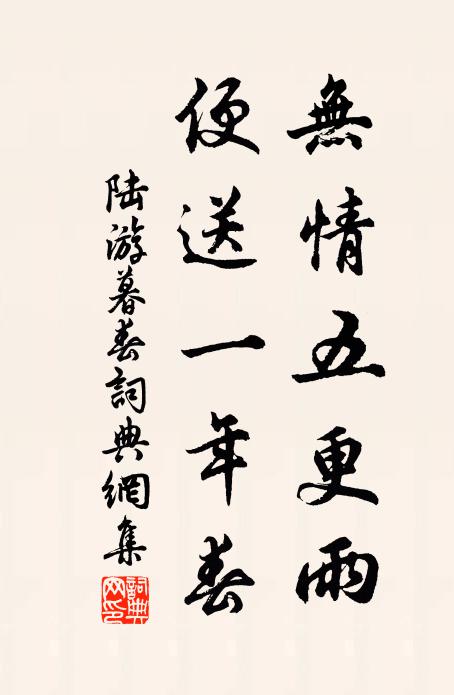 無情五更雨
便送一年春
陆游暮春詞典網集
詞典网印